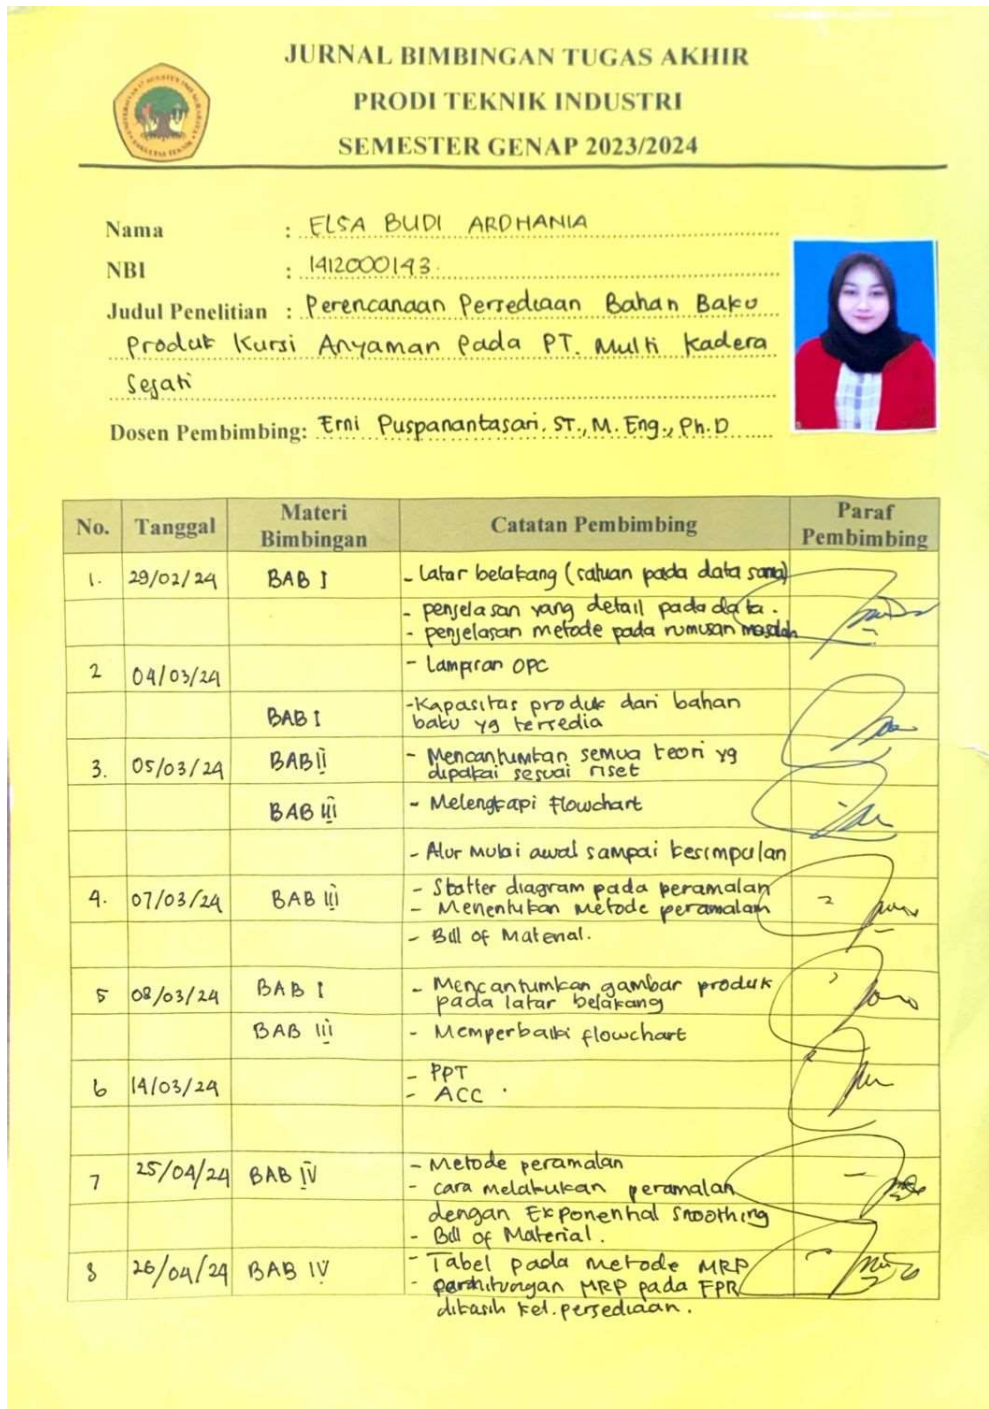 JURNAL BIMBINGAN TUGAS AKHIR
PRODI TEKNIK INDUSTRI
SEMESTER GENAP 2023/2024
Nama : ELSA BUDI ARDHANIA
NBI : 1412000143.
Judul Penelitian : Perencanaan Persediaan Bahan Baku
Produk Kursi Anyaman Pada PT. Multi Kadera
Sejati
Dosen Pembimbing: Erni Puspanantasari. ST., M. Eng., Ph.D
No. Tanggal Materi Bimbingan Catatan Pembimbing Paraf Pembimbing
1. 29/02/24 BAB I - Latar belakang (satuan pada data sama)
- penjelasan yang detail pada data.
- penjelasan metode pada rumusan masalah
2 04/03/24 - Lampiran OPC
BAB I - Kapasitas produk dari bahan
baku yg tersedia
3. 05/03/24 BAB II - Mencantumkan semua teori yg
dipakai sesuai riset
BAB III - Melengkapi flowchart
- Alur mulai awal sampai kesimpulan
4. 07/03/24 BAB III - Skatter diagram pada peramalan
- Menentukan metode peramalan
- Bill of Material.
5 08/03/24 BAB I - Mencantumkan gambar produk
pada latar belakang
BAB III - Memperbaiki flowchart
6 14/03/24 - PPT
- ACC
7 25/04/24 BAB IV - Metode peramalan
- cara melakukan peramalan
dengan Exponential Smoothing
- Bill of Material.
8 26/04/24 BAB IV - Tabel pada metode MRP
- perhitungan MRP pada FPR
dikasih ket. persediaan.